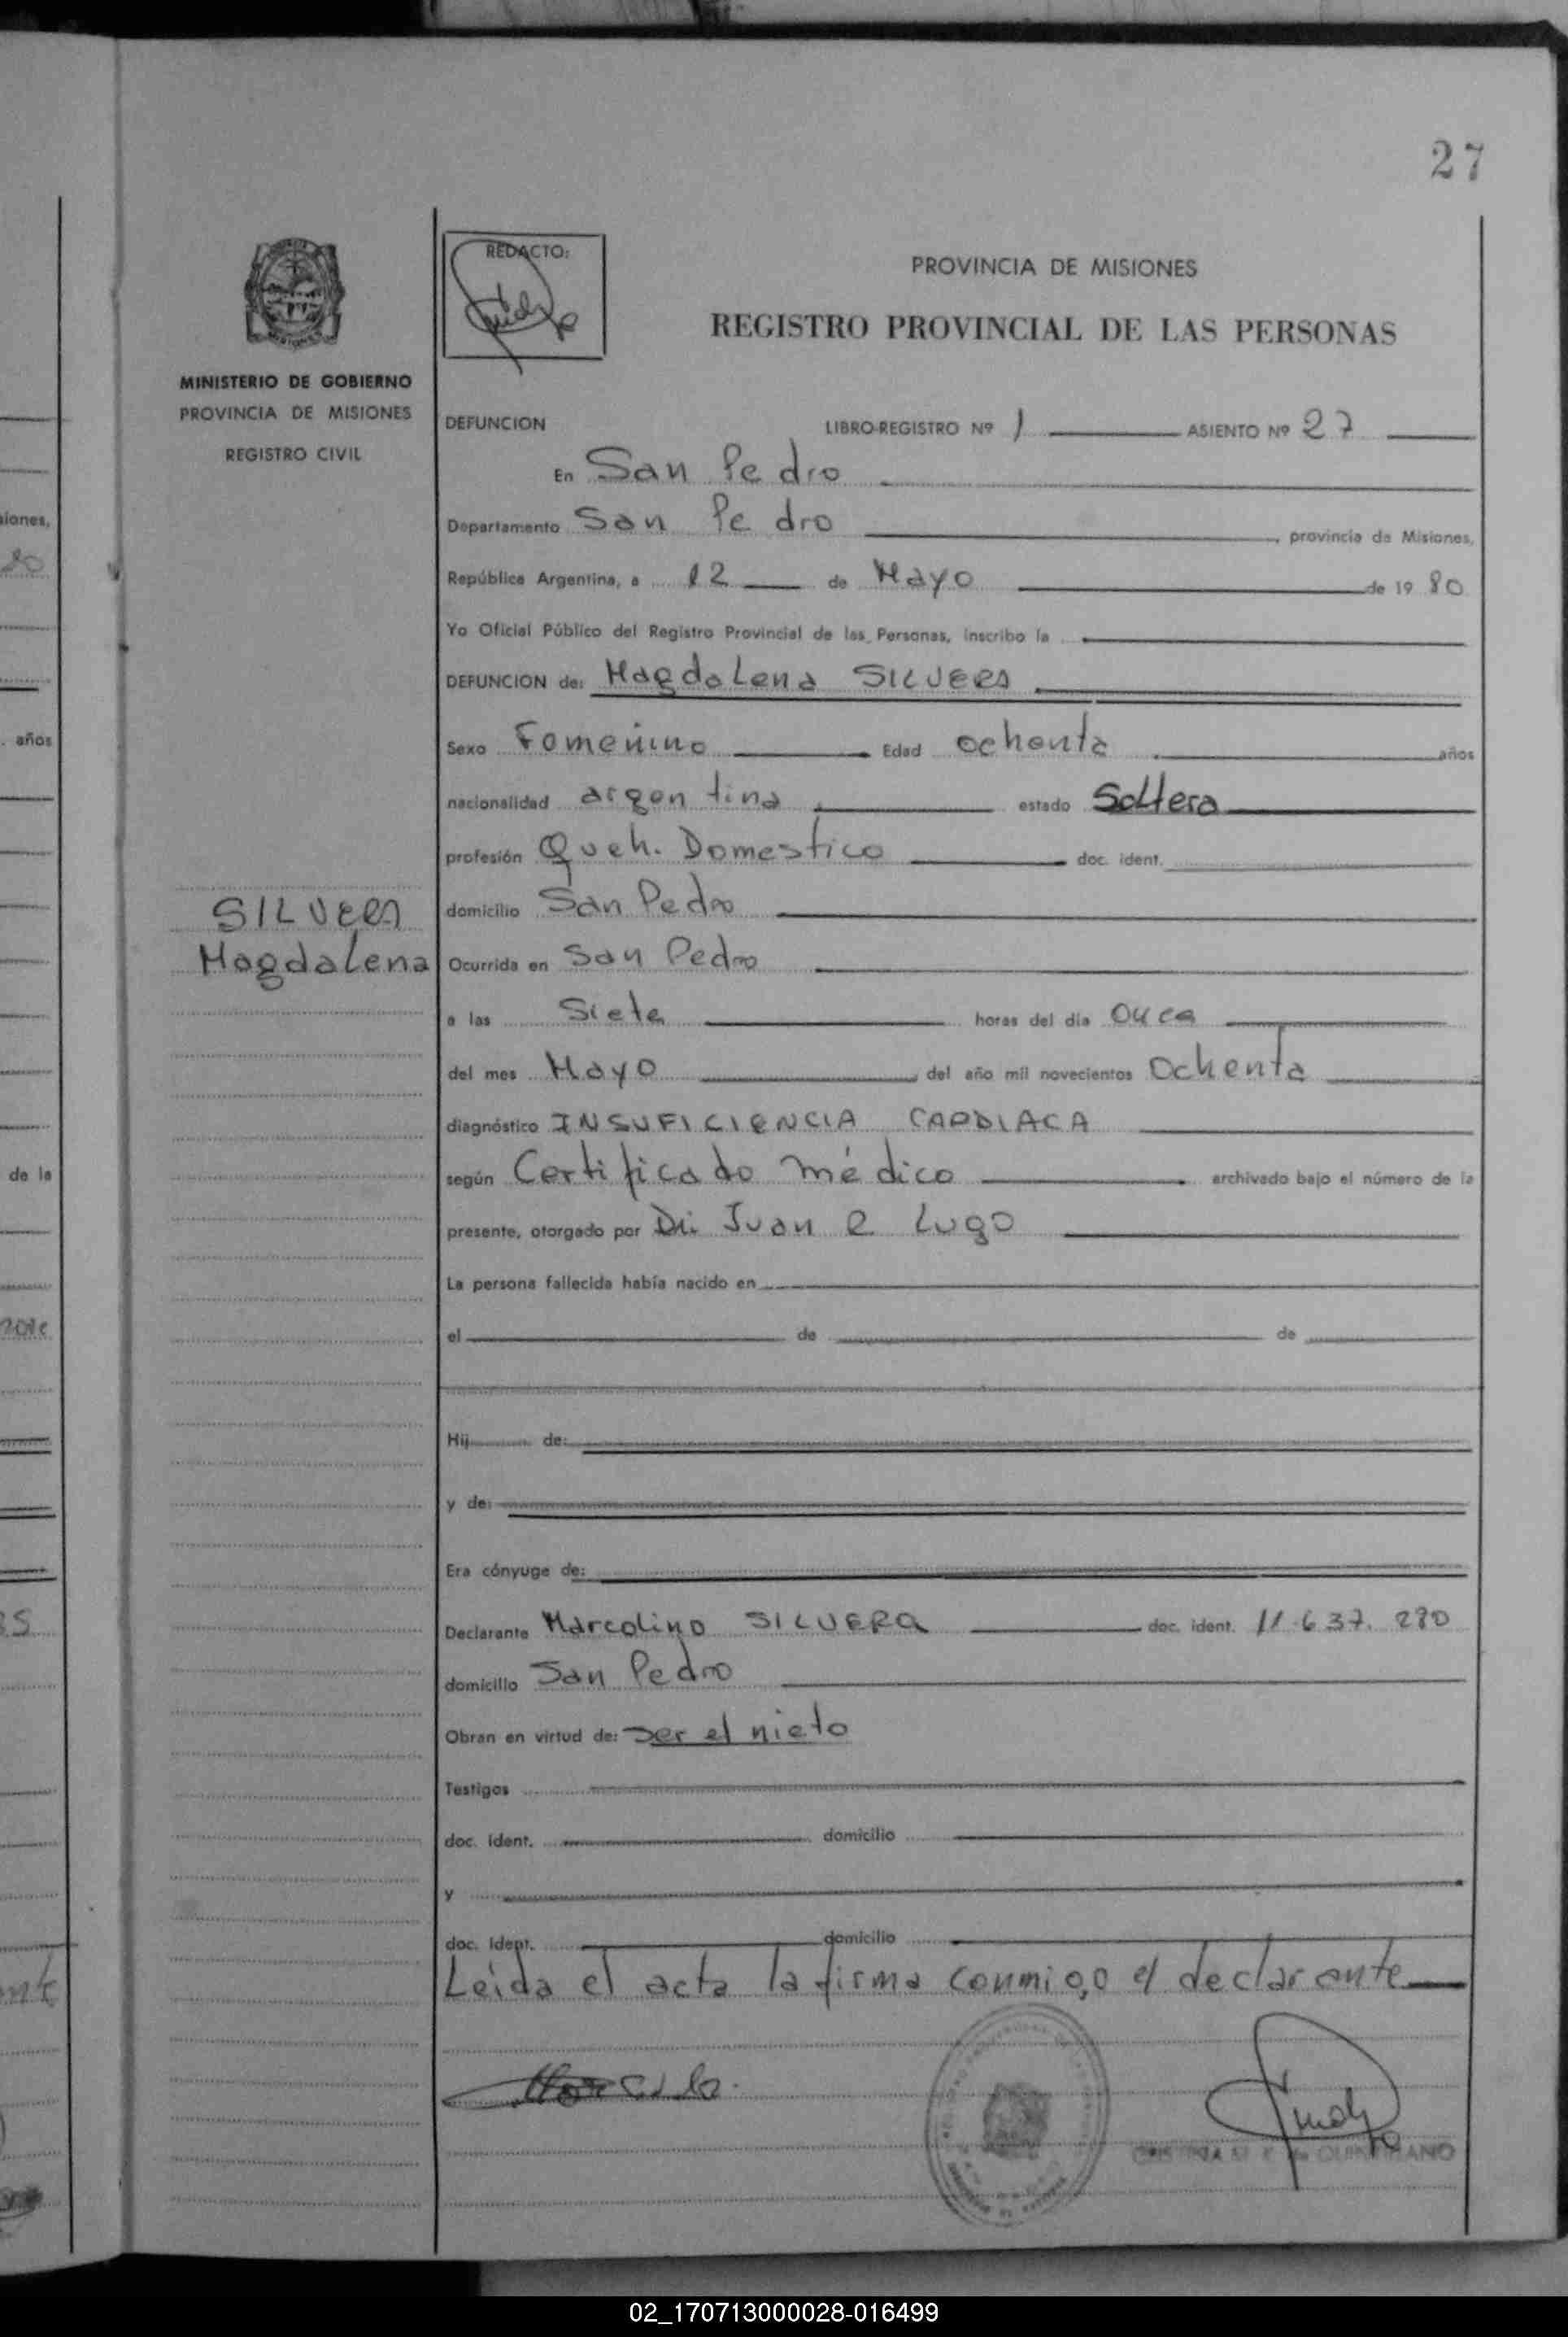 27
REDACTO:
PROVINCIA DE MISIONES
REGISTRO PROVINCIAL DE LAS PERSONAS
MINISTERIO DE GOBIERNO
PROVINCIA DE MISIONES
REGISTRO CIVIL
SILVERA
Magdalena
DEFUNCION LIBRO-REGISTRO Nº 1 ASIENTO Nº 27
En San Pedro
Departamento San Pedro, provincia de Misiones,
República Argentina, a 12 de Mayo de 1980
Yo Oficial Público del Registro Provincial de las Personas, inscribo la
DEFUNCION de: Magdalena SILVERA
Sexo Femenino Edad ochenta años
nacionalidad argentina estado Soltera
profesión Queh. Domestico doc. ident.
domicilio San Pedro
Ocurrida en San Pedro
a las Siete horas del día Once
del mes Mayo del año mil novecientos Ochenta
diagnóstico INSUFICIENCIA CARDIACA
según Certificado médico archivado bajo el número de la
presente, otorgado por Dr. Juan R Lugo
La persona fallecida había nacido en
el de de
Hij de:
y de:
Era cónyuge de:
Declarante Marcolino SILVERA doc. ident. 11.637.280
domicilio San Pedro
Obran en virtud de: Ser el nieto
Testigos
doc. ident. domicilio
y
doc. ident. domicilio
Leida el acta la firma conmigo el declarante
iones,
80
años
de la
02_170713000028-016499